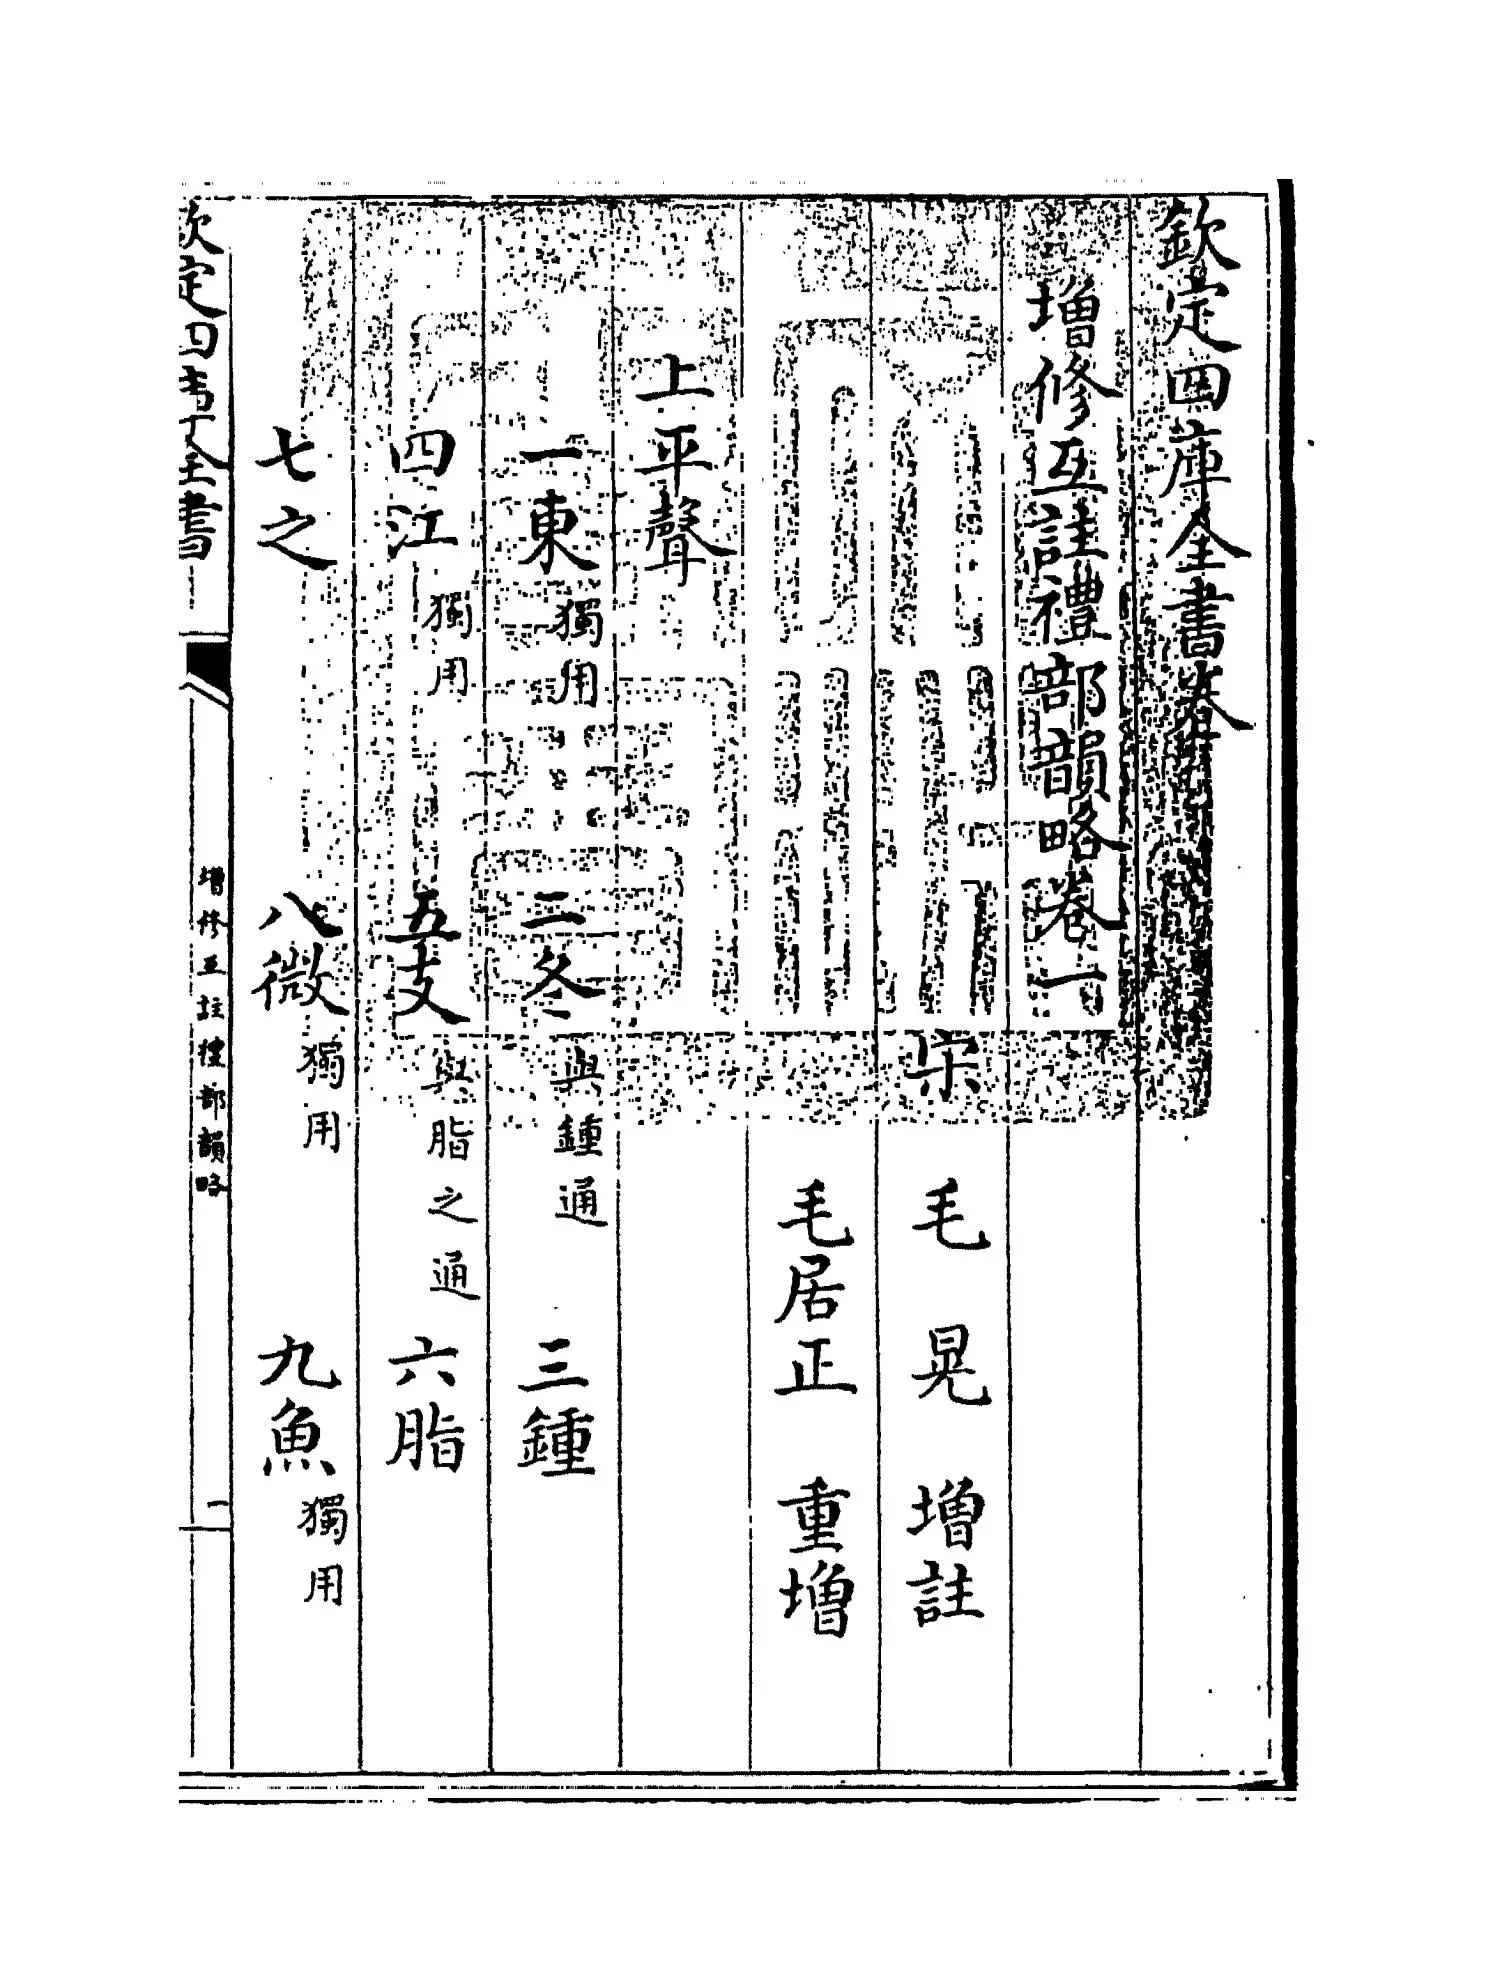 欽定四庫全書卷
增修互註禮部韻略卷一
宋 毛晃 增註
毛居正 重增
上平聲
一東獨用 二冬與鍾通 三鍾
四江獨用 五支與脂之通 六脂
七之 八微獨用 九魚獨用
欽定四庫全書
增修互註禮部韻略
一